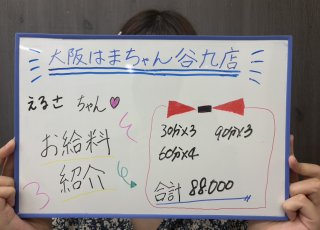 大阪はまちゃん谷九店
えるさ ちゃん♥
お給料
紹介
30分×3 90分×3
60分×4
合計 88.000